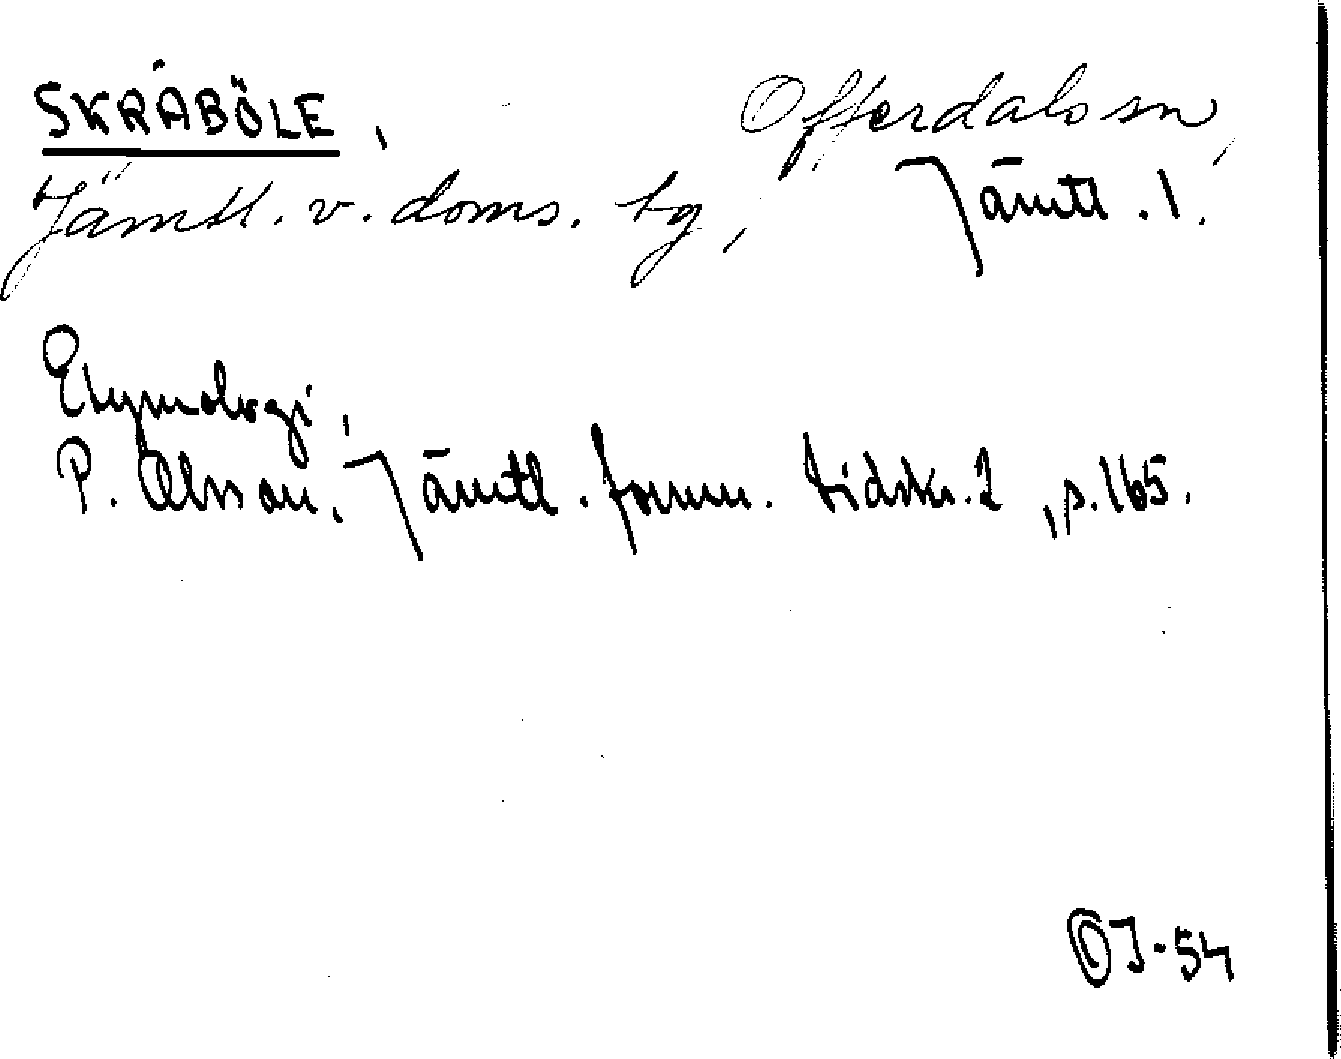 SKRÅBÖLE, Offerdals sn,
Jämtl. v. doms. tg, Jämtl. l.
Etymologi,
P. Olsson, Jämtl. fornm. tidskr. 2, s. 165.
OJ-54